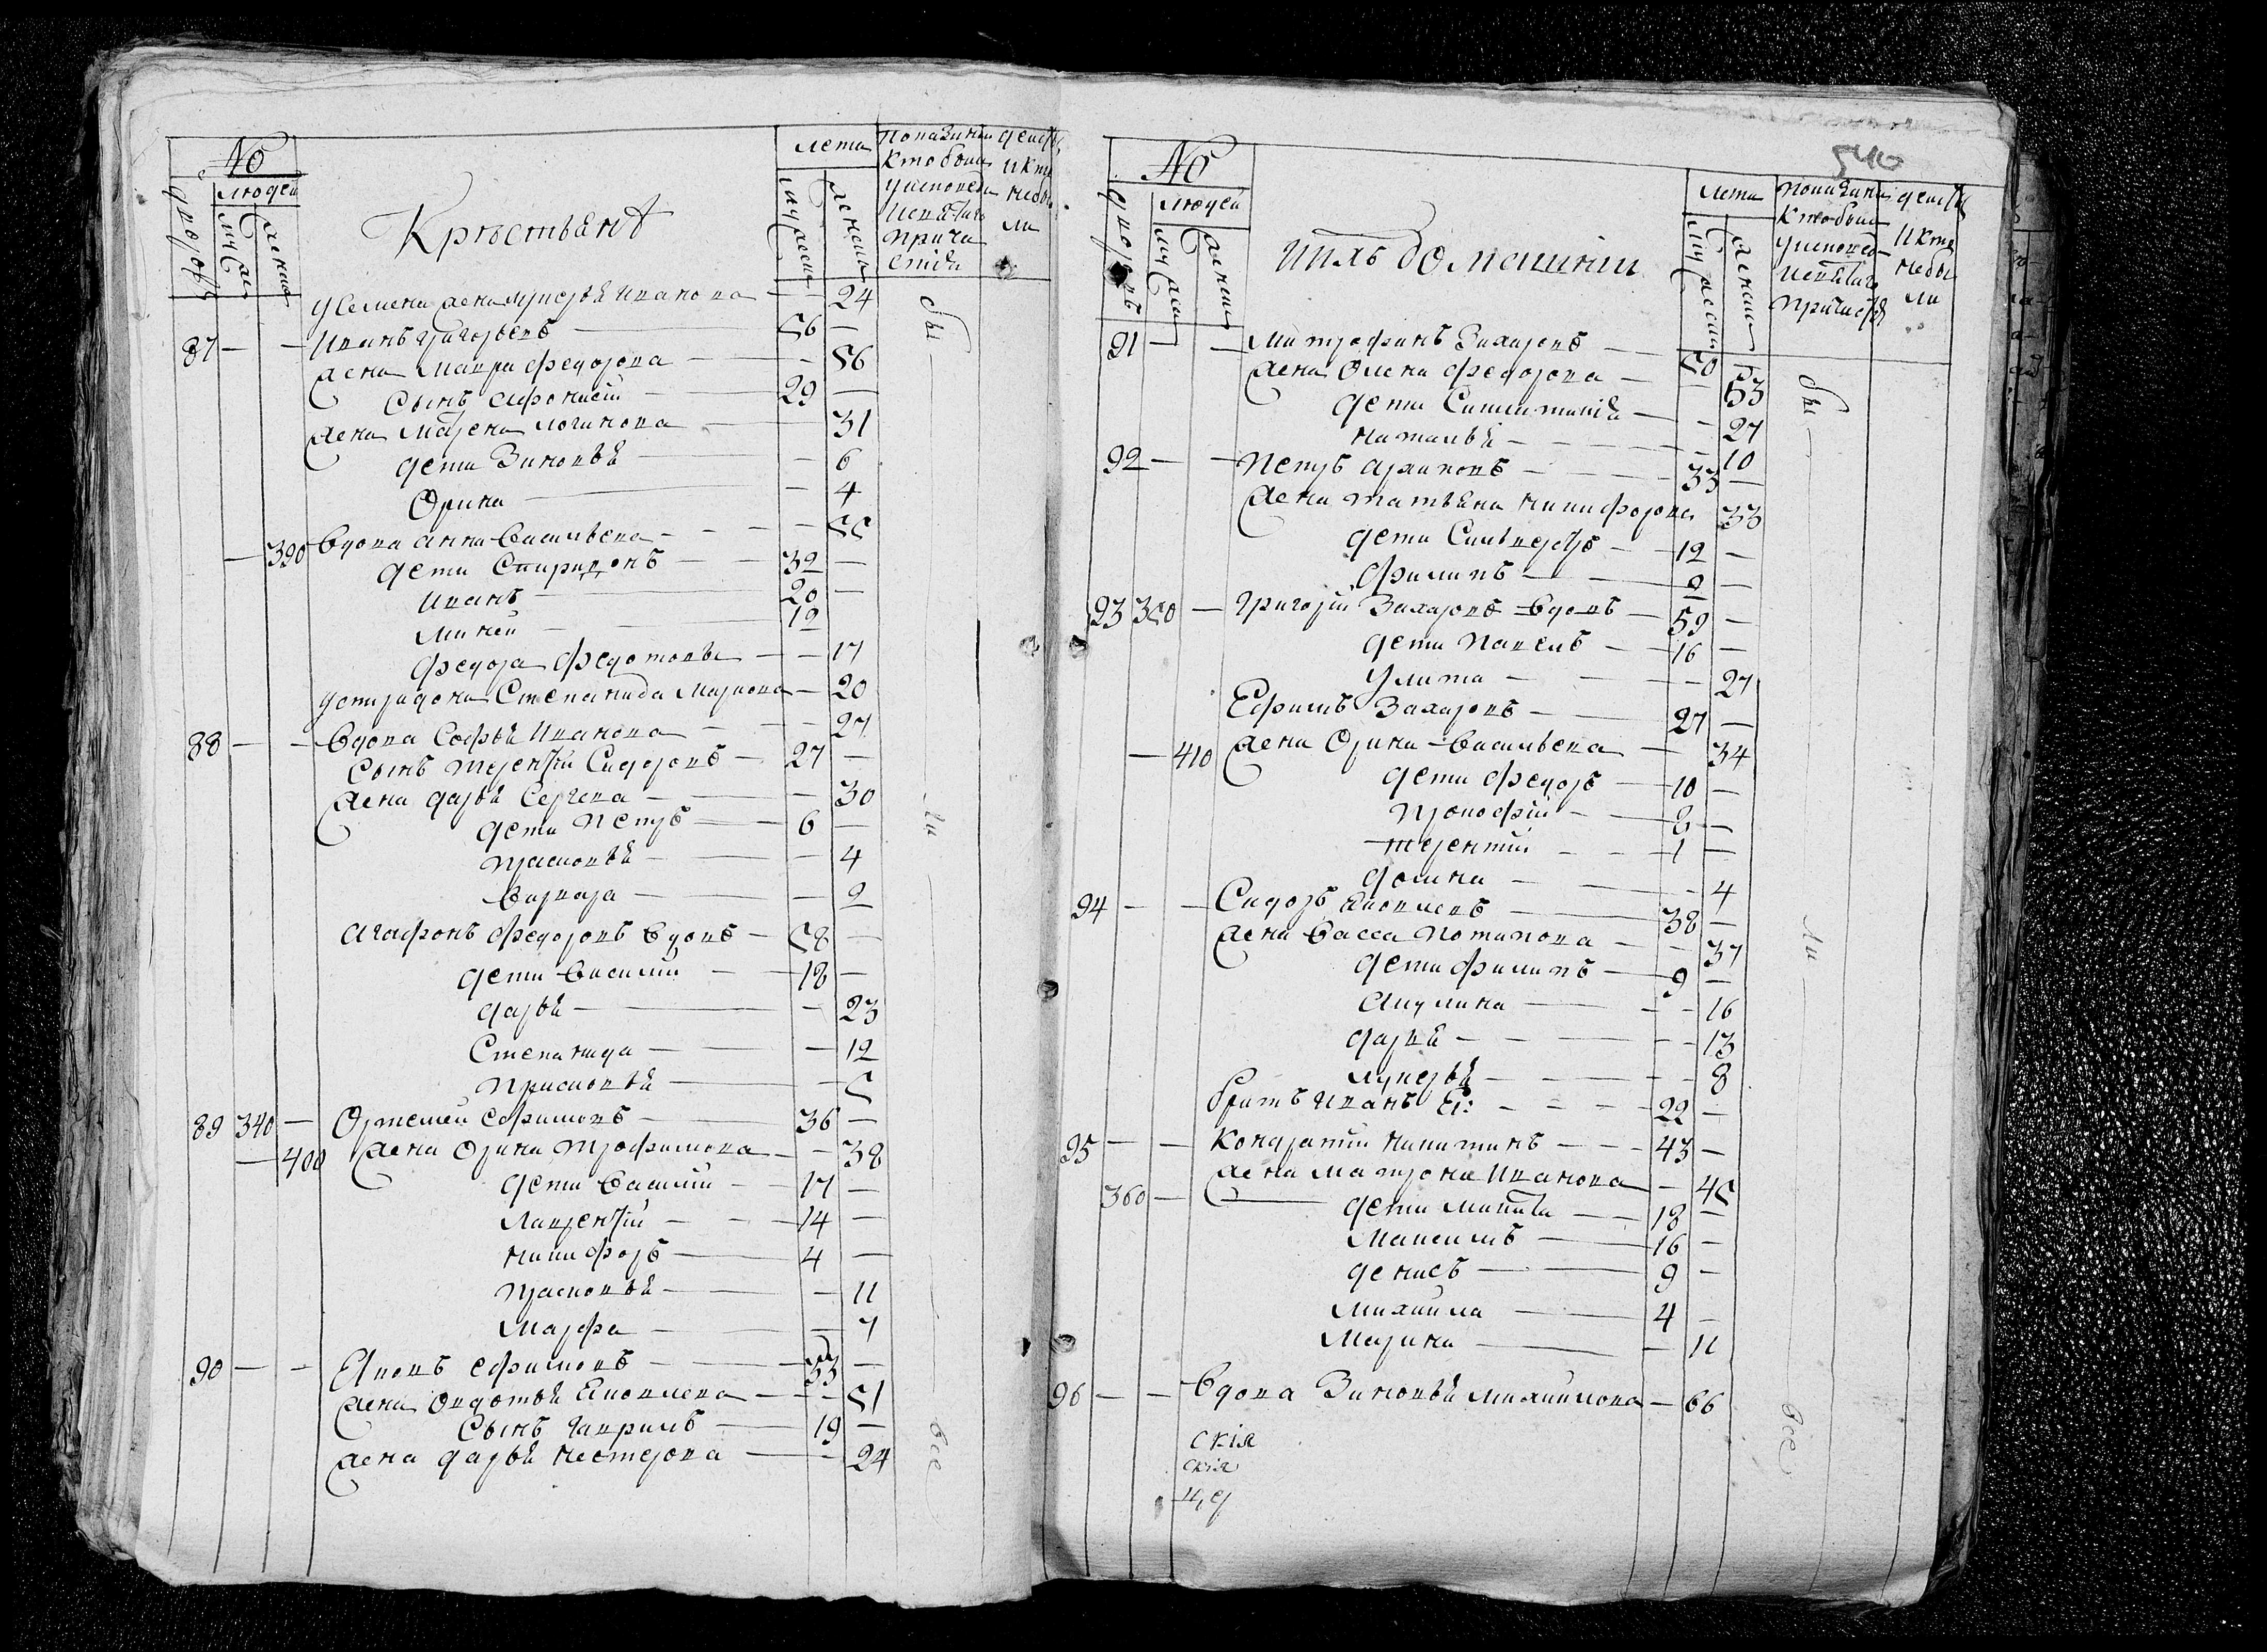 №
дворовъ
людей
муже
женска
Крѣстьянѣ
лета
мужеска
женска
Показаниі действ
кто были
уисповеди
исвятаго
прича
стиѧ
и кто
небы
ли
усемена жена лукерья иванова — — 24
87 — — Иванъ григорьевъ — 56 —
жена Мавра федорова — — 56
Сынъ афонасій — 29 —
жена Матрена логинова — — 31
дети Зиновья — — 6
Орина — — 4
— 390 Вдова анна васильева — — 55
дети Спиридонъ — 32 —
иванъ — 20 —
миней — 12
федора федотовы — — 17
успиридона Степанида Маркова — 20
88 — — Вдова Софья иванова — — 27
Сынъ терентій Сидоровъ — 27 —
жена дарья Сергева — — 30
дети петръ — 6 —
прасковья — — 4
варвара — — 2
Агафонъ федоровъ вдовъ — 58 —
дети василий — 18 —
дарья — — 23
Степанида — — 12
прасковья — — 5
89 340 — Ортемей ефимовъ — 36 —
— 400 жена орина трофимова — — 38
дети василий — 17 —
лаврентій — 14 —
никифоръ — 4 —
прасковья — — 11
марфа — — 7
90 — — Яковъ ефимовъ — 53 —
жена овдотья Яковлева — — 51
Сынъ гаврилъ — 19 —
жена дарья нестерова — — 24
бы — ли — все
540
№
дворовъ
людей
муже
женска
ихъ домашнии
лета
мужеска
женска
показаниі действ
кто были
уисповеди
исвятаго
причастія
и кто
небы
ли
91 — — Митрофанъ Захаровъ — 50 —
жена Олена федорова — — 53
дети Сиклитикія — — 27
наталья — — 10
92 — — петръ архиповъ — 33 —
жена татьяна никифорова 33
дети Силвестръ — 12 —
филипъ — 2 —
93 350 — григорій Захаровъ вдовъ — 59 —
дети павелъ — 16 —
улита — — 27
Ефимъ Захаровъ — 27 —
— 410 жена Орина васильева — 34
дети федоръ — 10 —
прокофій — 8 —
терентий — 1 —
домна — — 4
94 — — Сидоръ Яковлевъ — 38 —
жена васса потапова — — 37
дети филипъ — 9 —
акулина — — 16
дарья — — 13
лукерья — — 8
братъ иванъ Як: — 22 —
95 — — Кондратий никитинъ — 43 —
жена матрона иванова — 45
360 — дети никита — 18 —
максимъ — 16 —
денисъ — 9 —
михаила — 4 —
марина — — 11
96 — — Вдова Зиновья михаилова — 66
скія
скія
бы — ли — все